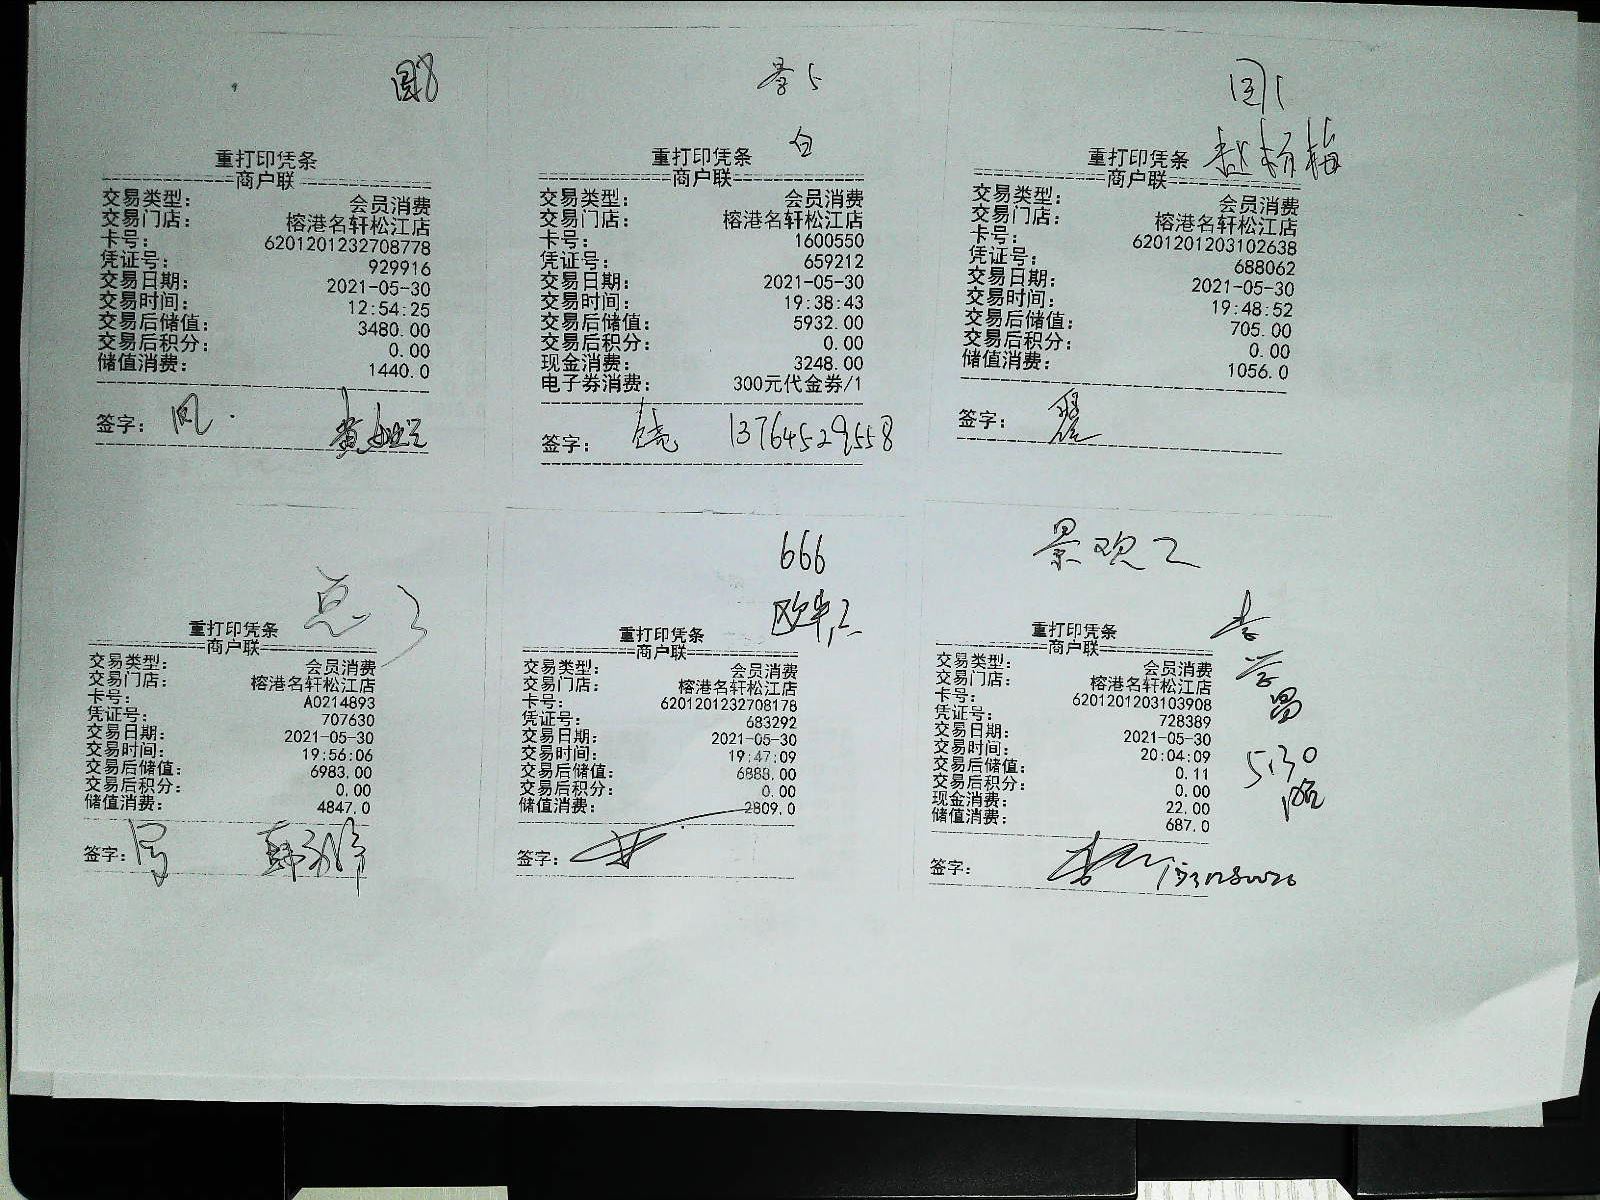 重打印凭条
商户联
交易类型： 会员消费
交易门店： 榕港名轩松江店
卡号： 6201201232708778
凭证号： 929916
交易日期： 2021-05-30
交易时间： 12:54:25
交易后储值： 3480.00
交易后积分： 0.00
储值消费： 1440.0
签字： 凤
景5
白
重打印凭条
商户联
交易类型： 会员消费
交易门店： 榕港名轩松江店
卡号： 1600550
凭证号： 659212
交易日期： 2021-05-30
交易时间： 19:38:43
交易后储值： 5932.00
交易后积分： 0.00
现金消费： 3248.00
电子券消费： 300元代金券/1
签字： 13764529558
重打印凭条
商户联
交易类型： 会员消费
交易门店： 榕港名轩松江店
卡号： 6201201203102638
凭证号： 688062
交易日期： 2021-05-30
交易时间： 19:48:52
交易后储值： 705.00
交易后积分： 0.00
储值消费： 1056.0
签字：
重打印凭条
商户联
交易类型： 会员消费
交易门店： 榕港名轩松江店
卡号： A0214893
凭证号： 707630
交易日期： 2021-05-30
交易时间： 19:56:06
交易后储值： 6983.00
交易后积分： 0.00
储值消费： 4847.0
签字：
666
重打印凭条
商户联
交易类型： 会员消费
交易门店： 榕港名轩松江店
卡号： 6201201232708178
凭证号： 683292
交易日期： 2021-05-30
交易时间： 19:47:09
交易后储值： 6888.00
交易后积分： 0.00
储值消费： 2809.0
签字：
景观2
李学昌
重打印凭条
商户联
交易类型： 会员消费
交易门店： 榕港名轩松江店
卡号： 6201201203103908
凭证号： 728389
交易日期： 2021-05-30
交易时间： 20:04:09
交易后储值： 0.11
交易后积分： 0.00
现金消费： 22.00
储值消费： 687.0
5.30
签字：